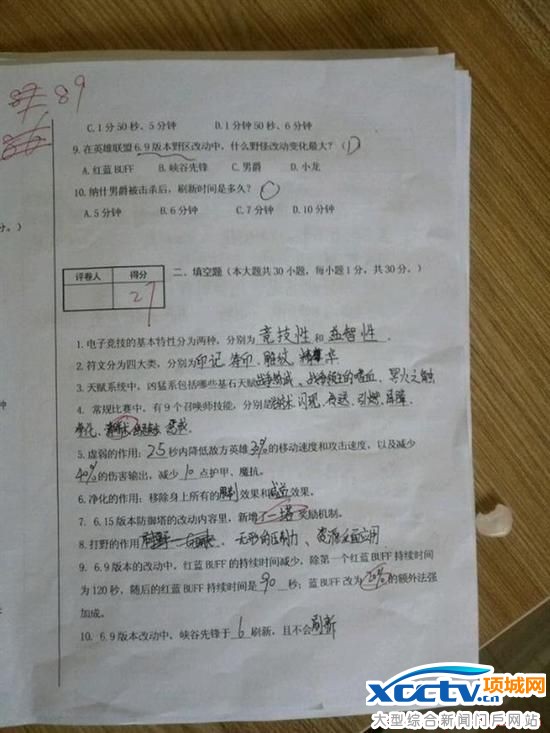 89
C.1分50秒、5分钟 D.1分钟50秒、6分钟
9.在英雄联盟6.9版本野区改动中，什么野怪改动变化最大？（D）
A.红蓝BUFF B.峡谷先锋 C.男爵 D.小龙
10.纳什男爵被击杀后，刷新时间是多久？
A.5分钟 B.6分钟 C.7分钟 D.10分钟
分。）
评卷人 得分
27
二、填空题（本大题共30小题，每小题1分，共30分。）
1.电子竞技的基本特性分为两种，分别为竞技性和益智性.
2.符文分为四大类，分别为印记、符印、雕纹、精华
3.天赋系统中，凶猛系包括哪些基石天赋战争热诚、战争领主的嗜血、死火之触
4.常规比赛中，有9个召唤师技能，分别是治疗术 闪现、传送、引燃、屏障、
净化、惩戒
5.虚弱的作用：2.5秒内降低敌方英雄30%的移动速度和攻击速度，以及减少
40%的伤害输出，减少10点护甲、魔抗。
6.净化的作用：移除身上所有的限制效果和减益效果。
7.6.15版本防御塔的改动内容里，新增了一塔奖励机制。
8.打野的作用 无形的压制力、资源反面应用
9.6.9版本的改动中，红蓝BUFF的持续时间减少，除第一个红蓝BUFF持续时间
为120秒，随后的红蓝BUFF持续时间是90秒；蓝BUFF改为20%的额外法强
加成。
10.6.9版本改动中，峡谷先锋于6刷新，且不会刷新
钟
xcctv.cn 项城网
大型综合新闻门户网站